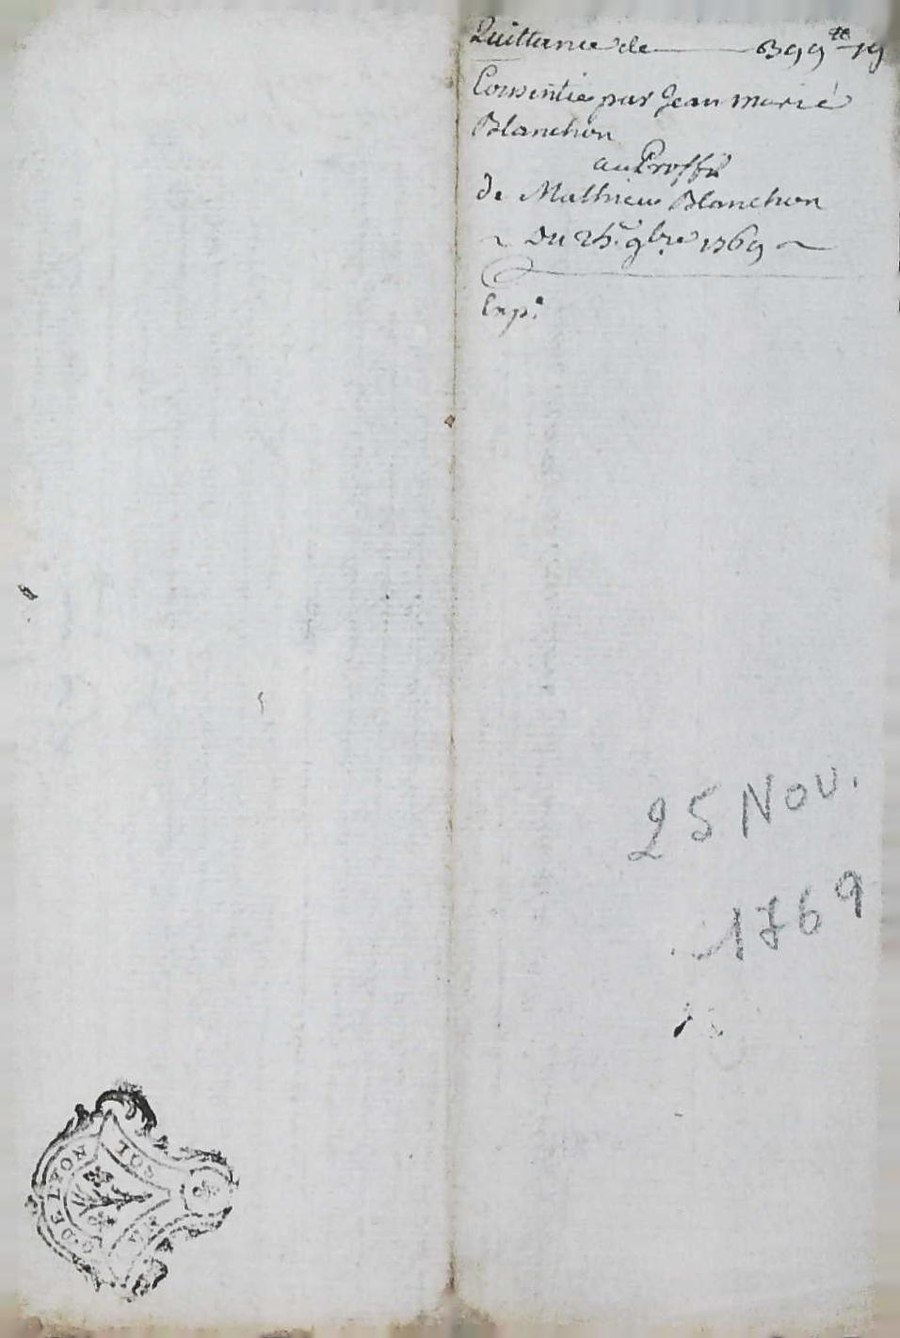 Quittance de — 399tt 19
Consentie par Jean marie
Blanchon
au Proffit
de Mathieu Blanchon
~ Du 25e. 9bre 1769 ~
Exp.e
25 Nov.
1769
G. DE LYON
SOL